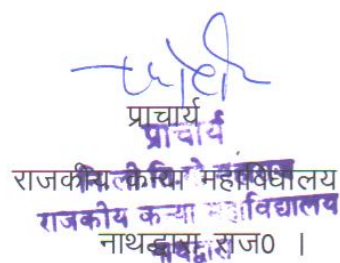 प्राचार्य
प्राचार्य
राजकीय कन्या महाविद्यालय
राजकीय कन्या महाविद्यालय
नाथद्वारा राज0 ।
नाथद्वारा